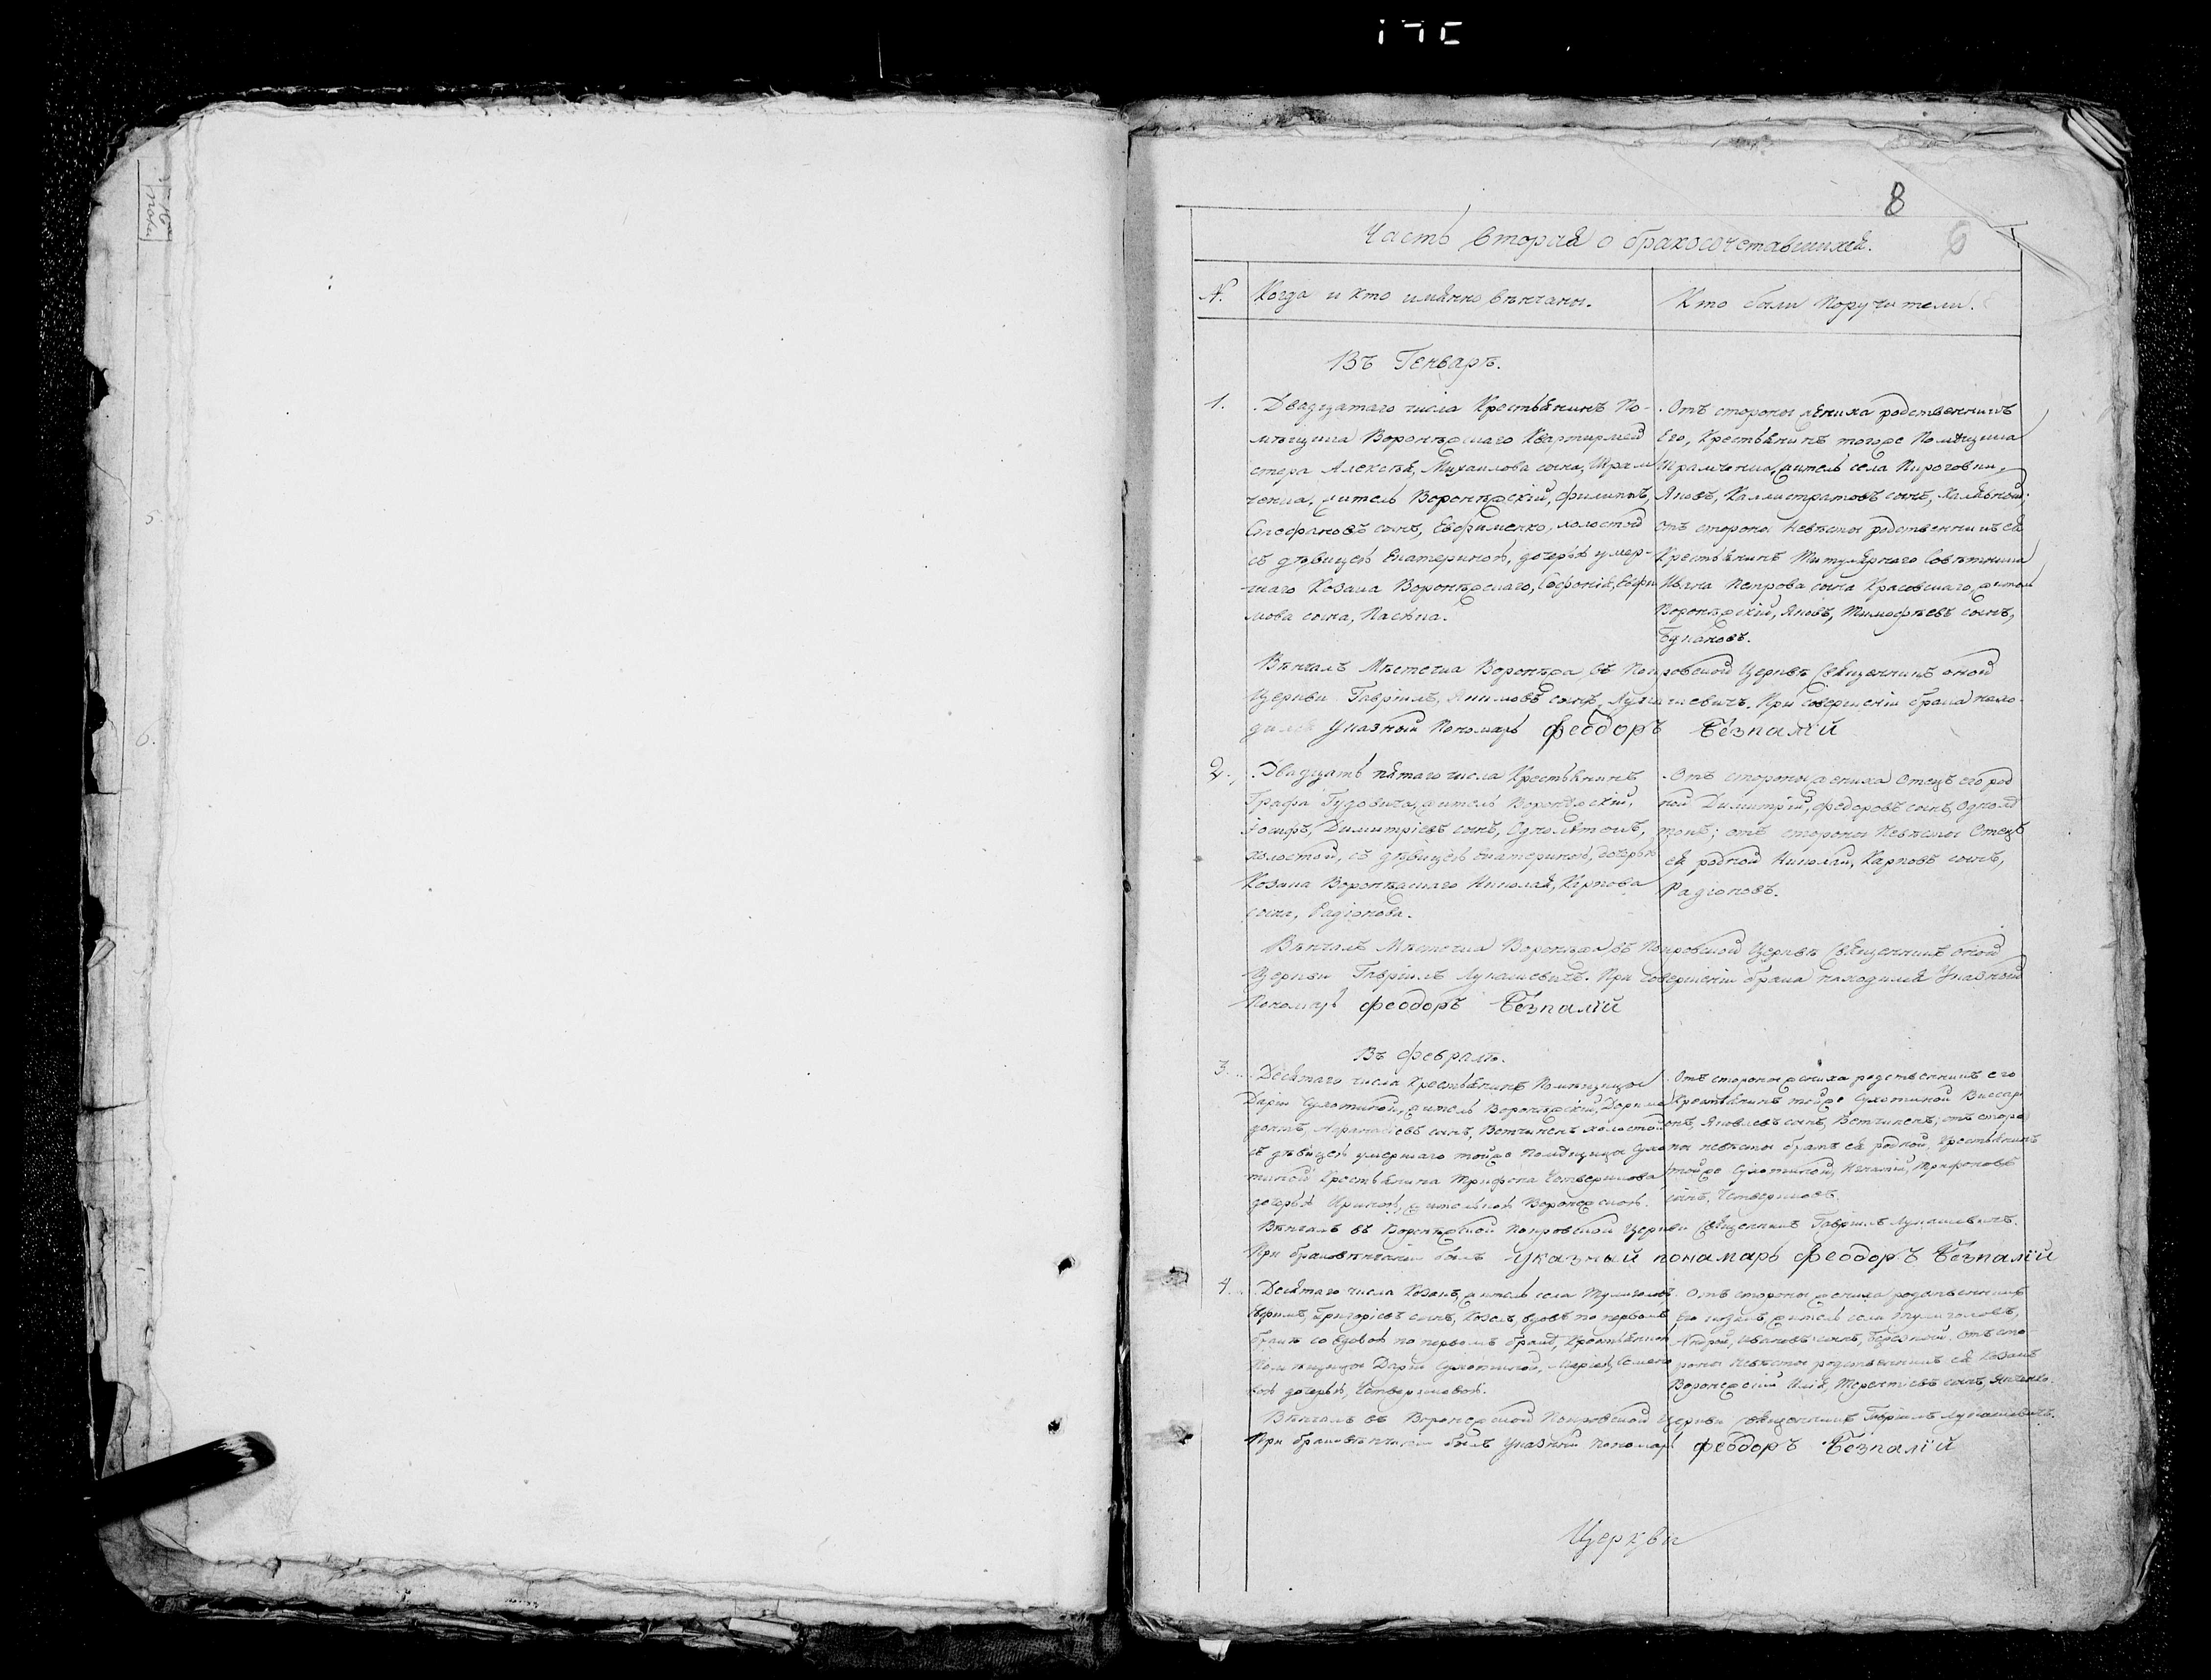 8
Часть вторая о бракосочетавшихся.
6
№.
Когда и кто имянно вѣнчаны.
Кто были Поручители.
Въ Генварѣ.
1.
Двадцатаго числа Крестьянинъ По-
мѣщика Воронѣжскаго Квартирмей
стера Алексѣя, Михаилова сына, Шрам
ченка, житель Воронѣжскій, Филиппъ,
Стефановъ сынъ, Евфименко, холостой
съ дѣвицею Екатериною, дочерью умер-
шаго Козака Воронѣжскаго, Софонія, Евфи
мова сына, Пасѣка.
Отъ стороны жениха родственникъ
Его, Крестьянинъ тогоже Помѣщика
Шрамченка, житель села Пироговки,
Яковъ, Каллистратовъ сынъ, Халявный;
отъ стороны Невѣсты родственникъ ея
Крестьянинъ Титулярнаго Совѣтника
Ивана Петрова сына Красовскаго, житель
Воронѣжскій, Яковъ, Тимофѣевъ сынъ,
Бунаковъ.
Вѣнчалъ Мѣстечка Воронѣжа, въ Покровской Церквѣ Священникъ оной
Церкви Гавріилъ, Якимовъ сынъ, Лукашевичъ. При совершеніи брака нахо-
дился Указный Пономарь Феодоръ Безпалїй
2.
Двадцать пятаго числа Крестьянинъ
Графа Гудовича, житель Воронѣжскій,
Іосифъ, Димитріевъ сынъ, Однолѣтокъ,
холостой, съ дѣвицею Екатериною, дочерью
Козака Воронѣжскаго Николая, Карпова
сына, Радіонова.
Отъ стороны жениха Отецъ его род
ной Димитрій, Федоровъ сынъ, Однолѣ
токъ; отъ стороны Невѣсты Отецъ
ея родной Николай, Карповъ сынъ,
Радіоновъ.
Вѣнчалъ Мѣстечка Воронѣжа, въ Покровской Церквѣ Священникъ оной
Церкви Гавріилъ Лукашевичъ. При совершеніи брака находился Указный
Пономарь Феодоръ Безпалїй
Въ Февралѣ.
3.
Десятаго числа Крестьянинъ Помѣщицы
Даріи Сухотиной, житель Воронѣжскій, Дориме
донтъ, Афанасіевъ сынъ, Ветчинекъ холостой
съ дѣвицею умершаго тойже Помѣщицы Сухо
тиной Крестьянина Трифона Четверикова
дочерью Ириною, жительною Воронежскою.
Отъ стороны жениха родственникъ его
Крестьянинъ тойже Сухотиной Виссарі
онъ, Яковлевъ сынъ, Ветчинекъ; отъ сторо
ны невѣсты братъ ея родной, Крестьянинъ
тойже Сухотиной, Игнатій, Трифоновъ
сынъ, Четвериковъ.
Вѣнчалъ въ Воронѣжской Покровской Церкви Священникъ Гавріилъ Лукашевичъ.
При браковѣнчаніи былъ Указный понамарь Феодоръ Безпалїй
4.
Десятаго числа Козакъ, житель села Тулиголовъ,
Ефимъ, Григоріевъ сынъ, Козелъ вдовъ по первомъ
бракѣ со вдовою по первомъ бракѣ, Крестьянкою
Помѣщицы Даріи Сухотиной, Маріею, Семено
вою дочерью, Четвериковою.
Отъ стороны жениха родственникъ
Его козакъ, житель села Тулиголовъ,
Андрей, Ивановъ сынъ, Березный. Отъ сто
роны Невѣсты родственникъ ея Козакъ
Воронежскій Илія, Терентіевъ сынъ, Янченко.
Вѣнчалъ въ Воронежской Покровской Церкви Священникъ Гавріилъ Лукашевичъ.
При браковѣнчаніи былъ Указный Пономарь Феодоръ Безпалїй
Церкви
5.
6.